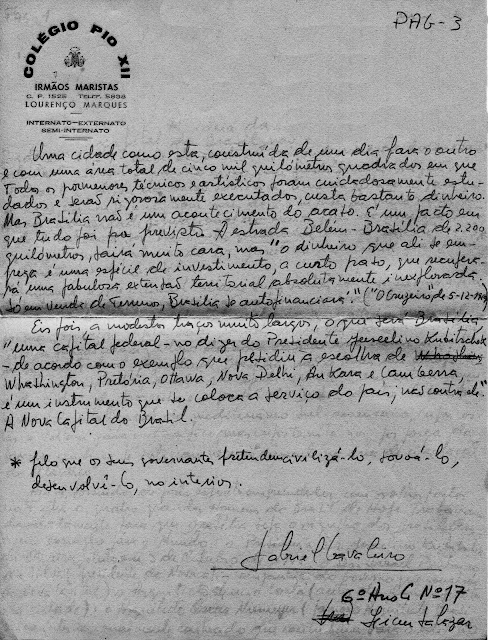 PAG-3
COLÉGIO PIO XII
IRMÃOS MARISTAS
C. P. 1525 TELEF. 5838
LOURENÇO MARQUES
INTERNATO-EXTERNATO
SEMI-INTERNATO
Uma cidade como esta, construída de um dia para o outro
e com uma área total de cinco mil quilómetros quadrados em que
todos os pormenores técnicos e artísticos foram cuidadosamente estu-
dados e serão rigorosamente executados, custa bastante dinheiro.
Mas Brasília não é um acontecimento do acaso. É um facto em
que tudo foi previsto. A estrada Belém-Brasília de 2.200
quilómetros, sairá muito cara, mas "o dinheiro que ali se em-
prega é uma espécie de investimento, a curto prazo, que recupera-
rá uma fabulosa extensão territorial absolutamente inexplorada.
Só em venda de terreno, Brasília se autofinanciará." ("O Cruzeiro" de 5-12-
Eis pois, a modestos traços muito largos, o que será Brasília,
"uma capital federal - no dizer do Presidente Juscelino Kubitschek
- de acordo com o exemplo que presidiu a escolha de
Whashington, Pretória, Ottawa, Nova Delhi, Ankara e Camberra,
é um instrumento que se coloca a serviço do país, nas contra ele".
A Nova Capital do Brasil.
* pelo que os seus governantes pretendem civilizá-lo, povoá-lo,
desenvolvê-lo, no interior.
Gabriel Cavaleiro
6º Ano C Nº 17
Liceu Salazar